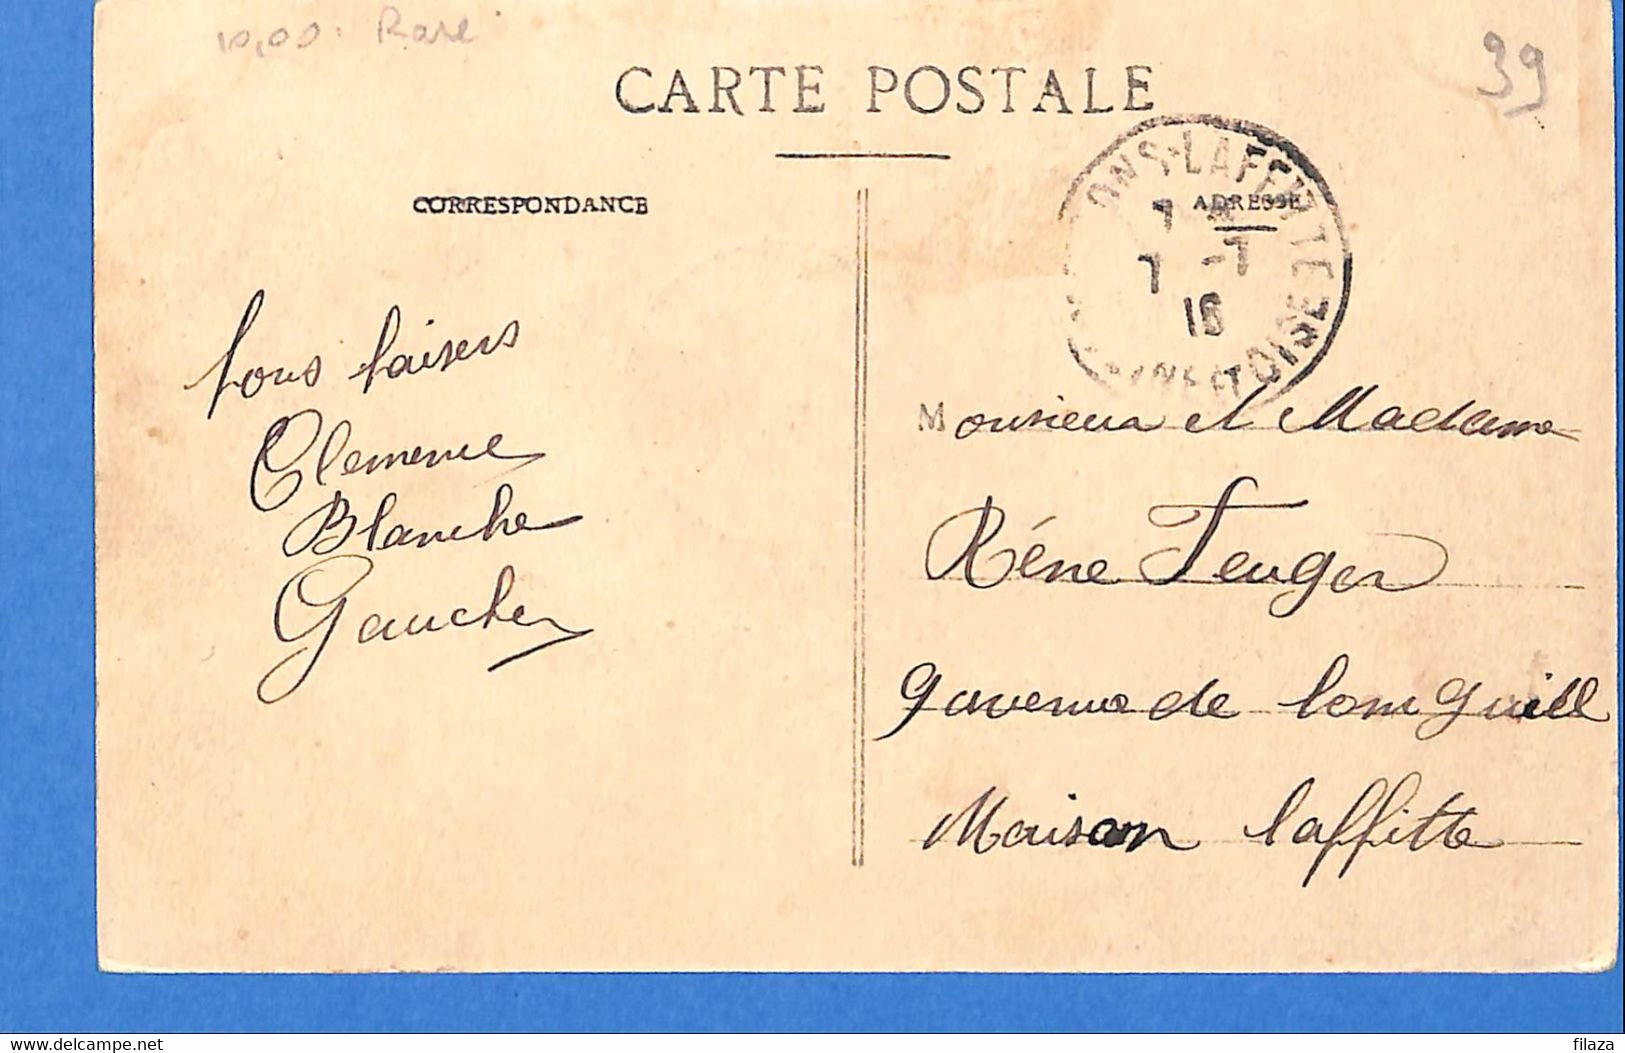 10,00. Rare
39
CARTE POSTALE
CORRESPONDANCE
ADRESSE
ONS-LAFFITTE
SEINE-ET-OISE
7
7 -7
16
bons baisers
Clemence
Blanche
Gaucher
Monsieur et Madame
Réne Feuger
9 avenue de
Maison laffitte
www.delcampe.net
filaza